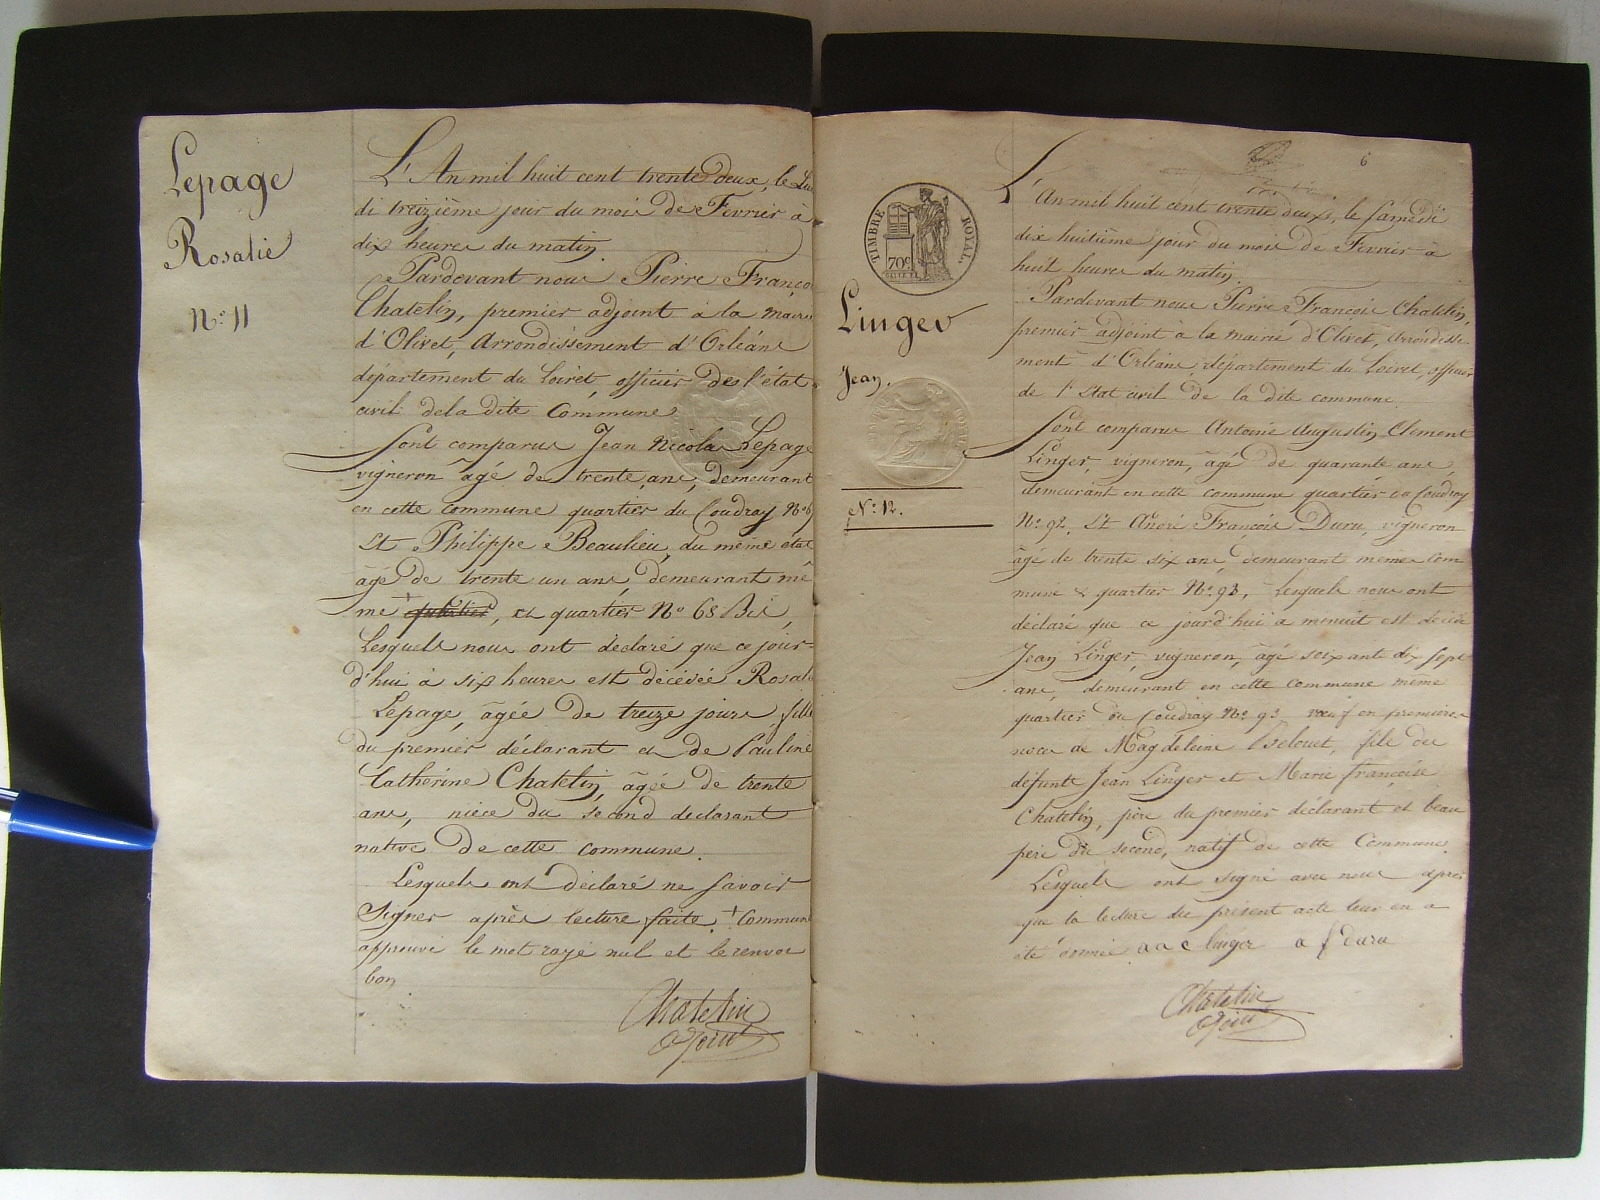 Lepage
Rosalie
N.° 11
L'An mil huit cent trente deux, le Lun
di treizième jour du mois de Fevrier à
dix heures du matin.
Pardevant nous Pierre Franço
Chatelin, premier adjoint à la mairie
d'Olivet, Arrondissement d'Orléans
département du Loiret, officier de l'état
civil de la dite Commune
Sont comparus Jean Nicolas Lepage
vigneron âgé de trente ans, demeurant
en cette commune quartier du Coudray N°
Et Philippe Beaulieu, du même état
âgé de trente un ans, demeurant mê
me + quartier, et quartier N° 68 Bis,
Lesquels nous ont déclaré que ce jour-
d'hui à six heures est décédée Rosali
Lepage, âgée de treize jours, fille
du premier déclarant et de Pauline
Catherine Chatelin, âgée de trente
ans, nièce du second declarant
native de cette commune.
Lesquels ont déclaré ne savoir
Signer après lecture faite. + Commune
approuvé le mot rayé nul et le renvoi
bon
Chatelin
Adjoint
6
TIMBRE ROYAL
70c
Linger
Jean.
N.° 12.
L'An mil huit cent trente deux, le Samedi
dix huitième jour du mois de Fevrier à
huit heures du matin.
Pardevant nous Pierre François Chatelin,
premier adjoint à la mairie d'Olivet, arrondisse-
ment d'Orléans, département du Loiret, officier
de l'Etat civil de la dite commune.
Sont comparus Antoine Augustin Clement
Linger, vigneron, âgé de quarante ans,
demeurant en cette commune quartier du Coudray
N° 92, Et André François Duru, vigneron
âgé de trente six ans, demeurant même com
mune & quartier N° 93, Lesquels nous ont
déclaré que ce jourd'hui à menuit est décédé
Jean Linger, vigneron, âgé soixante dix sept
ans, demeurant en cette Commune même
quartier du Coudray N° 93 veuf en premières
noces de Magdeleine, fils de
défunts Jean Linger et Marie françoise
Chatelin, père du premier déclarant et beau
père du second, natif de cette Commune.
Lesquels ont signé avec nous après
que la lecture du présent acte leur en a
été donnée a a c linger a f duru
Chatelin
Adjoint